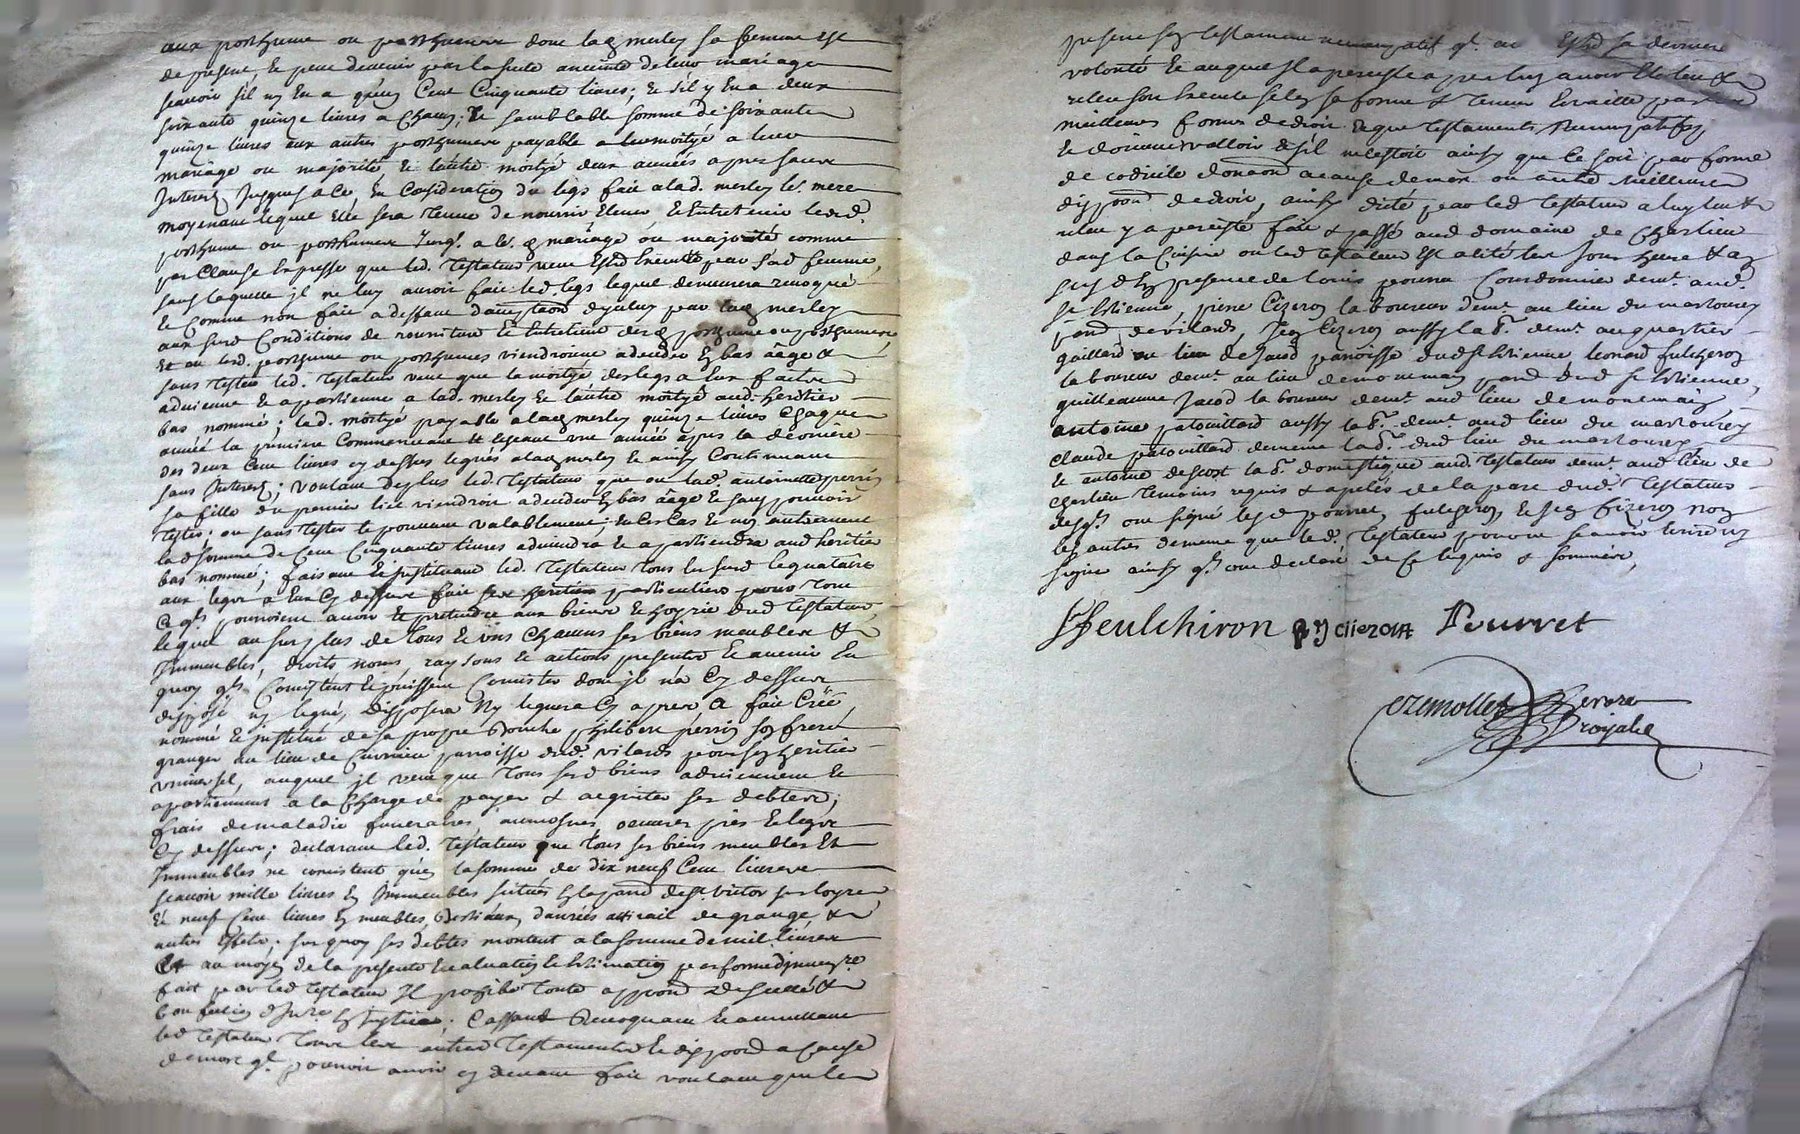 aux posthume ou posthumes dont lad merley sa femme est
de present, et peut devenir par la suite enceinte de leur mariage
scavoir s'il ny en a qu'un Cent Cinquante livres; et s'il y en a deux
soixante quinze livres a Chacun; et semblable somme de soixante
quinze livres aux autres posthumes payable a leur moitye a leur
mariage ou majorité, et l'autre moityé deux années apres sans
Interest Jusques a ce, En Consideration du legs fait a lad. merley le. mere
moyenant lequel elle sera tenue de nourrir Elever et Entretenir lesd.
posthume ou posthumes Jusq. a le. mariage ou majorité comme
par Clause Expresse que led. Testateur veut Estre Executée par sad femme,
sans laquelle il ne luy auroit fait led legs lequel demeurera revoqué
et Comme non fait a deffaut d'acceptaon d'yceluy par lad merley
aux susd Conditions de nourriture et Entretien desd posthume ou posthumes,
Et ou lesd. posthume ou posthumes viendroient a decedder En bas aage et
sans tester led. Testateur veut que la moityé des legs a Eux faits
advienne et apartienne a lad. merley et l'autre moityé aud. heritier
bas nommé; lad. moityé payable a lad merley quinze livres Chaque
année la premiere Commenceant Et Escheant une année apres la derniere
des deux Cent livres cy dessus legués a lad merley et ainsy Continuant
sans Interest; voulant de plus led. Testateur que ou lad. antoinette perrin
sa fille du premier lict viendroit a decedder En bas aage et sans pouvoir
tester, ou sans tester le pouvant valablement; En ce Cas et non autrement
lad somme de Cent Cinquante livres adviendra et apartiendra aud heritier
bas nommé; faisant et Instituant led. Testateur tous les susd legataires
aux legs a Eux Cy dessus fait ses heritiers particuliers pour tout
Ce qls pourroient avoir et pretendre aux biens et hoyrie dud Testateur,
lequel au surplus de tous et uns Chacuns ses biens meubles et
Immeubles, droits noms, raysons et actions presents et avenir En
quoy qls Consistent et puissent Consister dont il n'a Cy dessus
disposé ny legué, disposera Ny leguera Cy apres a fait Créé,
nommé et Institué de sa propre bouche philibert perrin son frere
granger au lieu de Cuvrieu parroisse dud. vilards pour son heritier
universel, auquel il veut que tous sesd biens adviennent et
apartiennent a la Charge de payer et acquiter ses debtes,
frais de maladie funeraires aumosnes oeuvres pies et legs
Cy dessus; declarant led. Testateur que tous ses biens meubles Et
Immeubles ne consistent qu'en la somme de dix neuf Cent livres
scavoir mille livres En Immeubles situés En la parr de St victor sur loyre
Et neuf Cent livres En meubles, bestiaux, danrées attirail de grange, et
autres effets; sur quoy ses debtes montent a la somme de mil livres
Et au moyen de la presente Evaluation et Estimation par forme d'inventre
fait par led Testateur Il prohibe toute appoon de scellé et
Confection d'Invre En Justice; Cassant Revoquant et annullant
led Testateur tous les autres Testaments et dispoon a Cause
de mort ql pourroit avoir cy devant fait voulant que le
present son testament nuncupatif ql. a Estre sa derniere
volonté et auquel Il a persisté apres luy avoir Esté leu et
releu soit Executé selon sa forme et Teneur Et vaille par
meilleures formes de droit et que testaments Nuncupatifs
et doivent valloir et s'il ne l'estoit ainsy que ce soit par forme
de codicile donaon a cause de mort ou autre Meilleure
dispoon de droit, ainsy dicté par led Testateur a luy leu et
releu y a persisté fait et passé aud domaine de Charlieu
dans la Cuisine ou led testateur est alité les Jour heure et an
susd En presence de Louis pourret Cordonnier demt. aud.
St Estienne, pierre Cizeron laboureur demt. au lieu du martourey
parr de vilards, Jean Cizeron aussy labr. demt. au quartier
gaillard au lieu de Jacod parroisse dud St Estienne leonard fulchiron
laboureur demt. au lieu de monemay parr dud St Estienne,
guilleaume Jacod laboureur demt aud lieu de monemay
antoine patouillard aussy labr. demt. aud lieu du martourey
claude patouillard de meme labr. dud lieu du martourey
et antoine descost labr. domestique aud. Testateur demt. aud lieu de
Charlieu temoins requis et apelés de la part dud. Testateur
desqls ont signé lesd pourret, fulchiron, et Jean Cizeron non
les autres de meme que led. Testateur pour ne scavoir Ecrire ny
signer ainsy qls ont declaré de Ce Enquis et sommés,
Feulchiron Cizeron Pourret
Cizemollet
royal